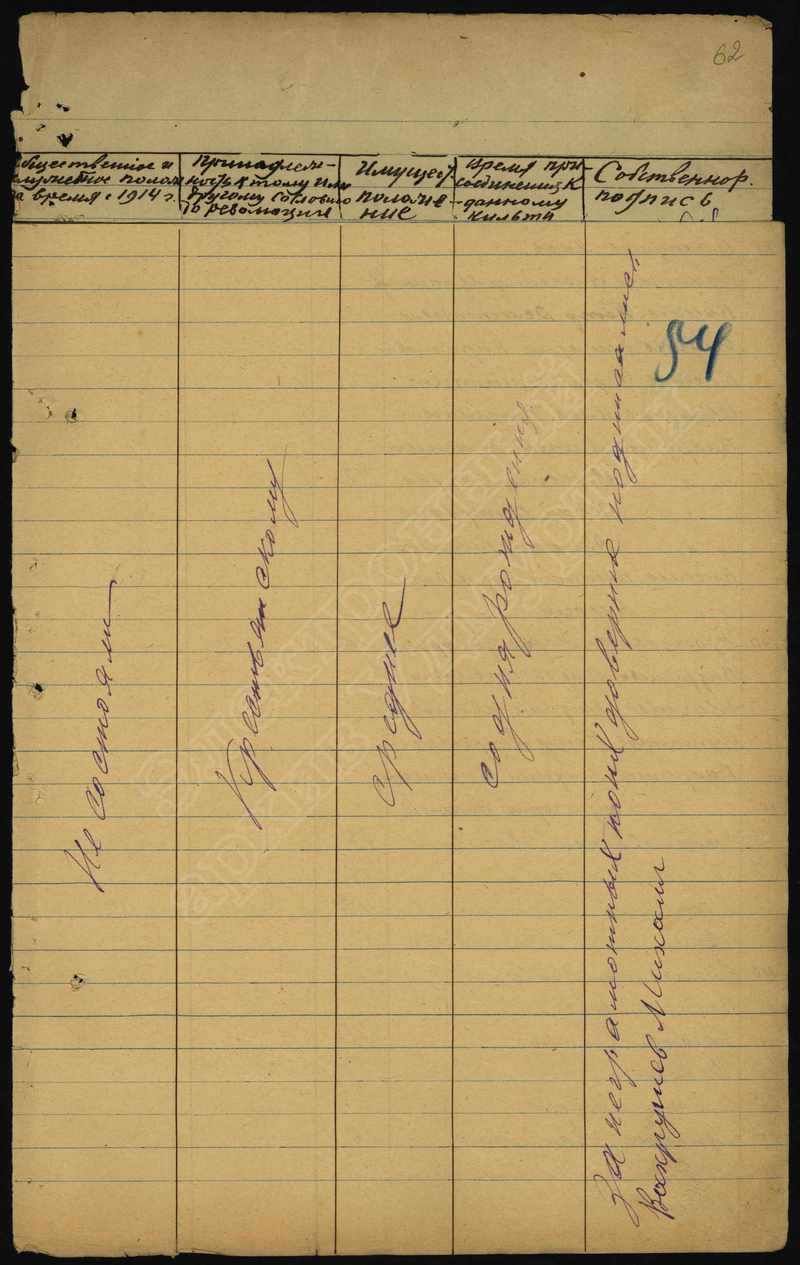 62
Общественное и
служебное полож
за время с 1914 г.
Принадлеж-
ность к тому или
другому сословию
до революции
Имущест.
положе-
ние
Время при
соединения к
данному
культу
Собственнор.
подпись
54
Не состоял
Крестьянскому
средние
со дня рождения
За неграмотных по их доверию подписался
Вахрушев Михаил